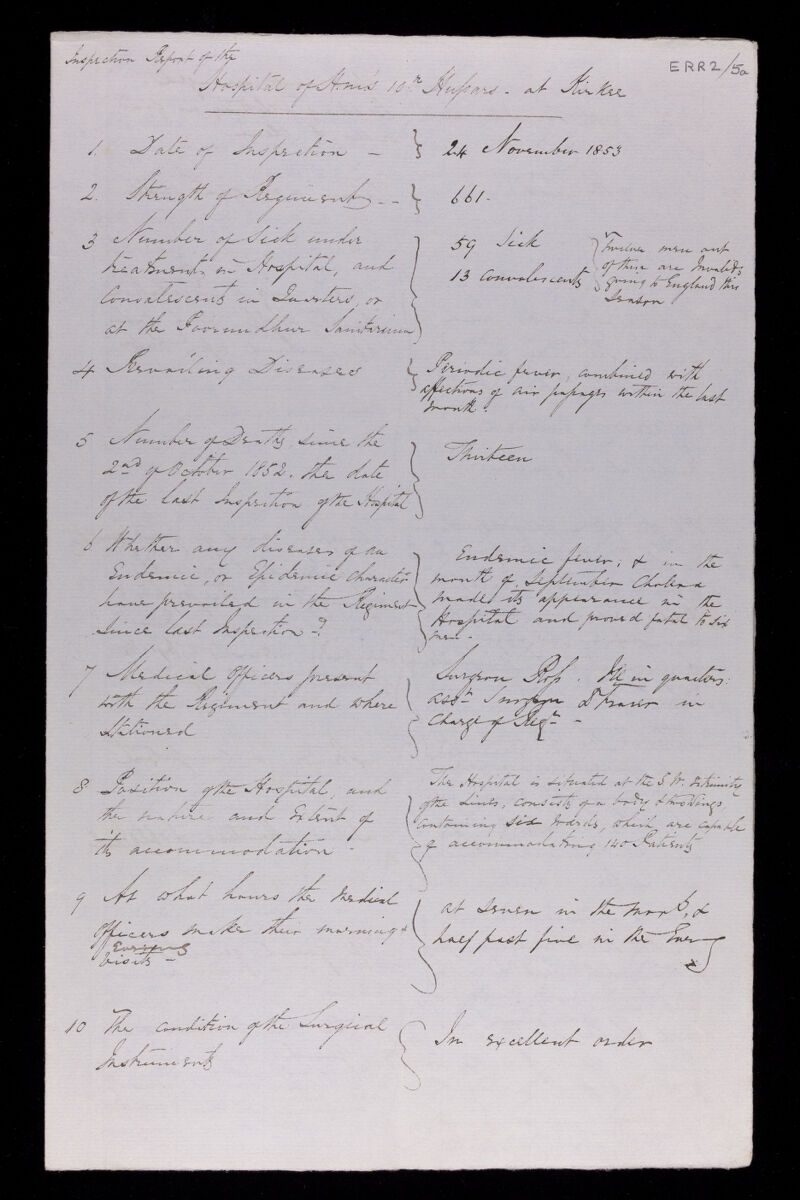 Inspection Report of the
ERR2/5a
Hospital of H.M's 10th Hussars - at Kirkee
1. Date of Inspection -
24 November 1853
2. Strength of Regiment - -
661.
3 Number of Sick under
treatment in Hospital, and
Convalescents in Quarters, or
at the Poorundhur Sanitarium
59 Sick
13 Convalescents
Twelve men out
of these are Invalids
going to England this
Season
4 Prevailing Diseases
Periodic fever, combined with
affections of air passages within the last
month.
5 Number of Deaths since the
2nd of October 1852. the date
of the last Inspection of the Hospital
Thirteen
6 Whether any diseases of an
Endemic, or Epidemic character
have prevailed in the Regiment
since last Inspection?
Endemic fever; & in the
month of September Cholera
made its appearance in the
Hospital and proved fatal to six
men.
7 Medical Officers present
with the Regiment and where
stationed
Surgeon in quarters:
asst. Surgeon Dr Fraser in
Charge of Regt. -
8 Position of the Hospital, and
the nature and Extent of
its accommodation.
The Hospital is situated at the S.W. extremity
of the Lines, consists of a body & two Wings,
containing six wards, which are capable
of accommodating 140 Patients
9 At what hours the Medical
Officers make their morning &
Evening
Visits -
at seven in the morng, &
half past five in the Eveng
10 The condition of the Surgical
Instruments
In excellent order